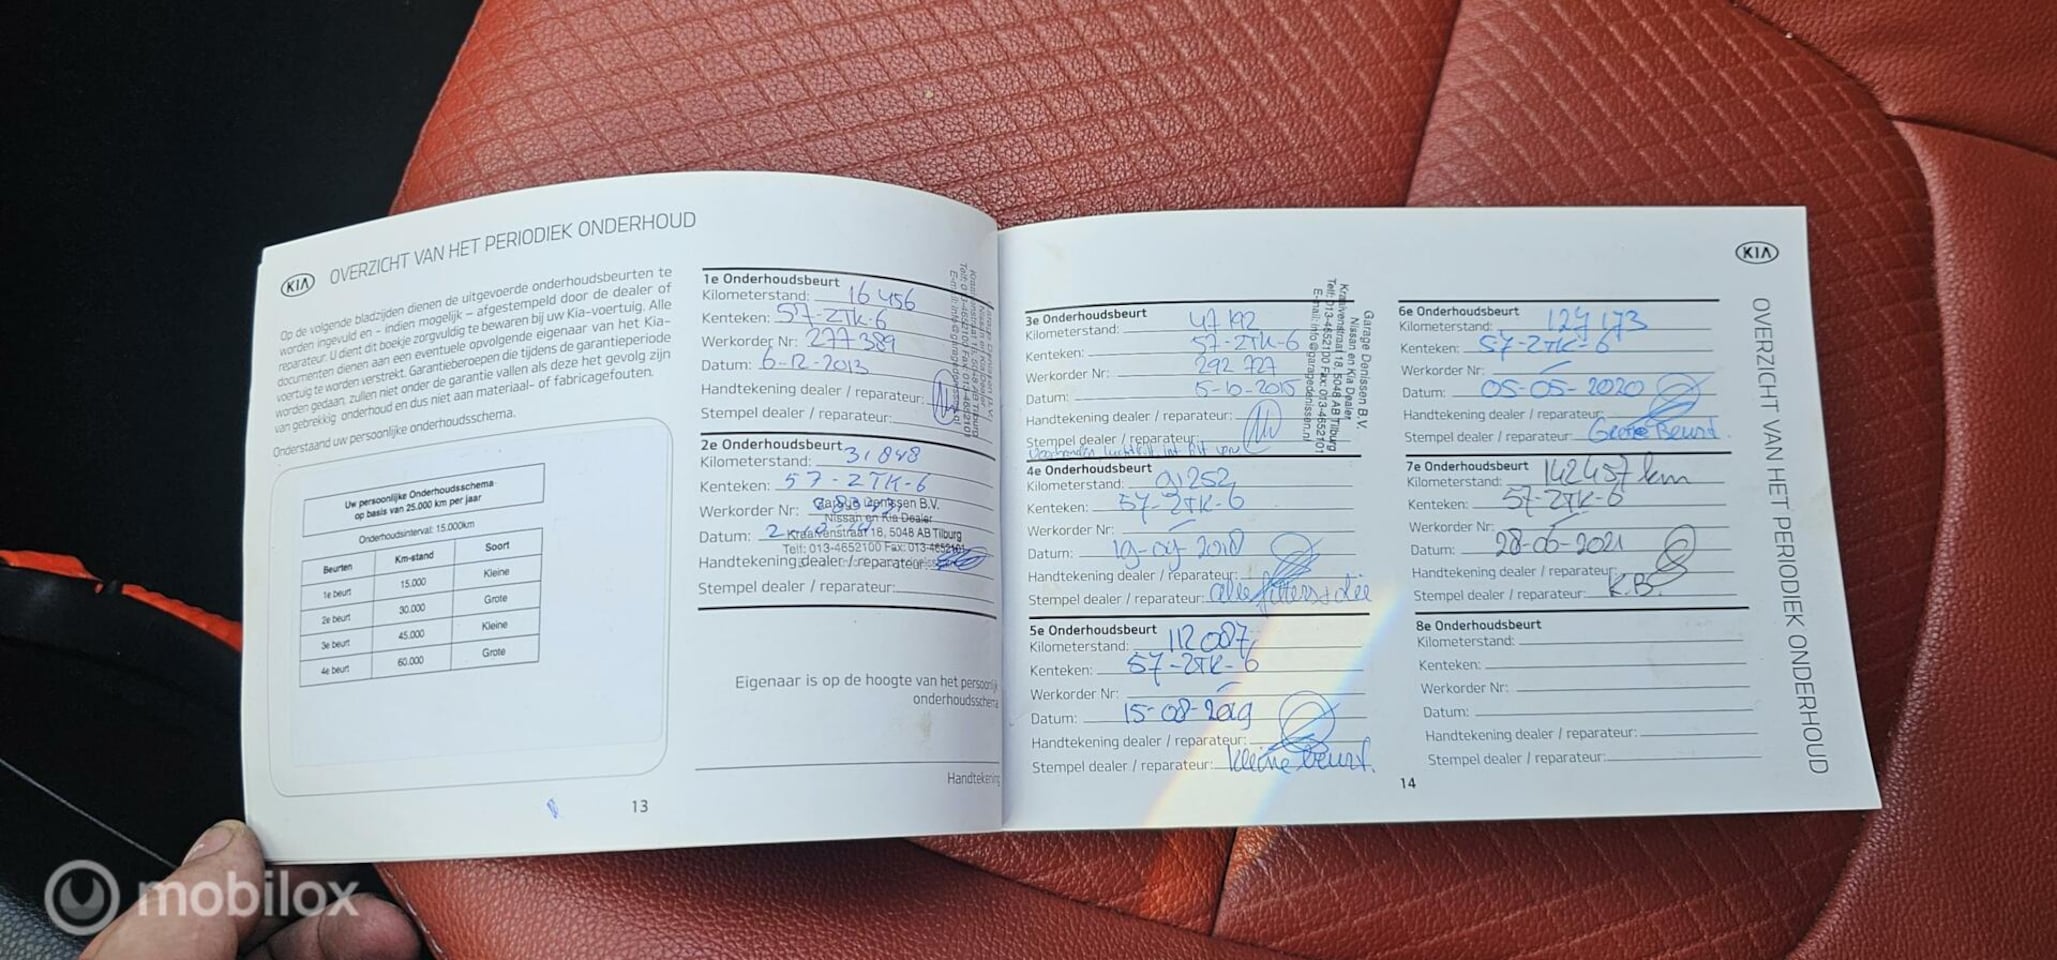 KIA OVERZICHT VAN HET PERIODIEK ONDERHOUD
Op de volgende bladzijden dienen de uitgevoerde onderhoudsbeurten te
worden ingevuld en - indien mogelijk – afgestempeld door de dealer of
reparateur. U dient dit boekje zorgvuldig te bewaren bij uw Kia-voertuig. Alle
documenten dienen aan een eventuele opvolgende eigenaar van het Kia-
voertuig te worden verstrekt. Garantieberoepen die tijdens de garantieperiode
worden gedaan, zullen niet onder de garantie vallen als deze het gevolg zijn
van gebrekkig onderhoud en dus niet aan materiaal- of fabricagefouten.
Onderstaand uw persoonlijke onderhoudsschema.
Uw persoonlijke Onderhoudsschema
op basis van 25.000 km per jaar
Onderhoudsinterval: 15.000km
Beurten Km-stand Soort
1e beurt 15.000 Kleine
2e beurt 30.000 Grote
3e beurt 45.000 Kleine
4e beurt 60.000 Grote
13
1e Onderhoudsbeurt
Kilometerstand: 16 456
Kenteken: 57-ZTK-6
Werkorder Nr: 277389
Datum: 6-12-2013
Handtekening dealer / reparateur:
Stempel dealer / reparateur:
2e Onderhoudsbeurt
Kilometerstand: 31848
Kenteken: 57-ZTK-6
Werkorder Nr:
Datum:
Handtekening dealer / reparateur:
Stempel dealer / reparateur:
Nissan en Kia Dealer
Kraaivenstraat 18, 5048 AB Tilburg
Telf: 013-4652100 Fax: 013-4652101
Eigenaar is op de hoogte van het persoonlijk
onderhoudsschema
Handtekening
3e Onderhoudsbeurt
Kilometerstand: 47192
Kenteken: 57-ZTK-6
Werkorder Nr: 292 727
Datum: 5-10-2015
Handtekening dealer / reparateur:
Stempel dealer / reparateur:
Garage Denissen B.V.
Nissan en Kia Dealer
Kraaivenstraat 18, 5048 AB Tilburg
Telf: 013-4652100 Fax: 013-4652101
E-mail: info@garagedenissen.nl
4e Onderhoudsbeurt
Kilometerstand: 91252
Kenteken: 57-ZTK-6
Werkorder Nr: -
Datum: 19-09-2018
Handtekening dealer / reparateur:
Stempel dealer / reparateur: alle filters + olie
5e Onderhoudsbeurt
Kilometerstand: 112087
Kenteken: 57-ZTK-6
Werkorder Nr: -
Datum: 15-08-2019
Handtekening dealer / reparateur:
Stempel dealer / reparateur: kleine beurt.
KIA
OVERZICHT VAN HET PERIODIEK ONDERHOUD
6e Onderhoudsbeurt
Kilometerstand: 127173
Kenteken: 57-ZTK-6
Werkorder Nr: -
Datum: 05-05-2020
Handtekening dealer / reparateur:
Stempel dealer / reparateur: Grote Beurt
7e Onderhoudsbeurt
Kilometerstand: 142457 km
Kenteken: 57-ZTK-6
Werkorder Nr: -
Datum: 28-06-2021
Handtekening dealer / reparateur:
Stempel dealer / reparateur: K.B.
8e Onderhoudsbeurt
Kilometerstand:
Kenteken:
Werkorder Nr:
Datum:
Handtekening dealer / reparateur:
Stempel dealer / reparateur:
14
mobilox